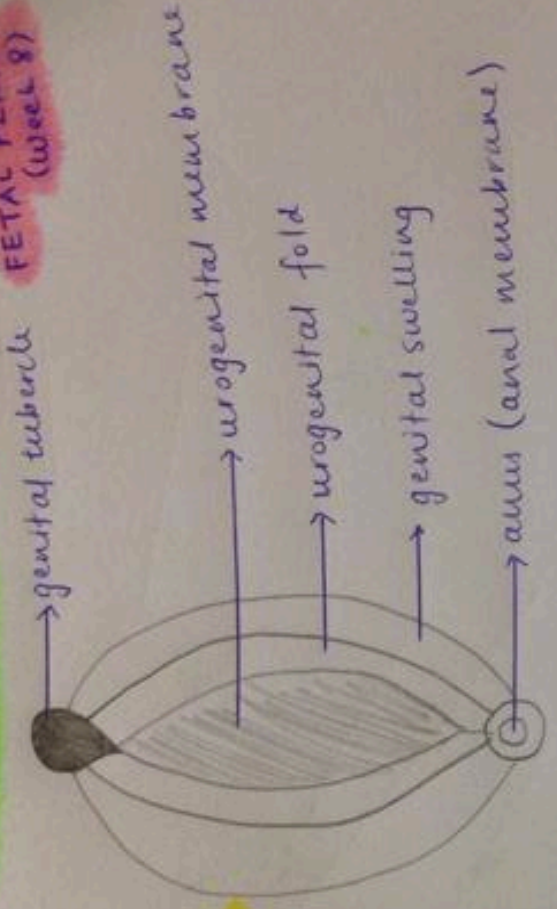 FETAL
(Week 8)
genital tubercle
urogenital membrane
urogenital fold
genital swelling
anus (anal membrane)